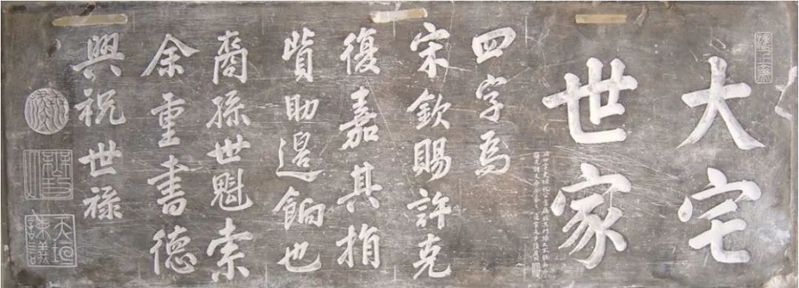 大宅
世家
四字為
宋欽賜許克
復嘉其捐
貲助邊餉也
裔孫世魁索
余重書德
興祝世祿